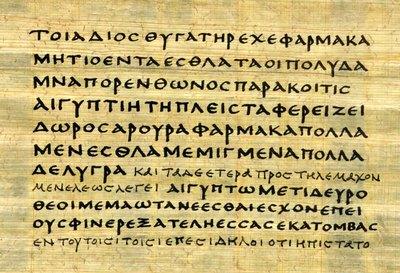 ΤΟΙΑΔΙΟΣΘΥΓΑΤΗΡΕΧΕΦΑΡΜΑΚΑ
ΜΗΤΙΟΕΝΤΑΕΣΘΛΑΤΑΟΙΠΟΛΥΔΑ
ΜΝΑΠΟΡΕΝΘΩΝΟΣΠΑΡΑΚΟΙΤΙΣ
ΑΙΓΥΠΤΙΗΤΗΠΛΕΙΣΤΑΦΕΡΕΙΖΕΙ
ΔΩΡΟΣΑΡΟΥΡΑΦΑΡΜΑΚΑΠΟΛΛΑ
ΜΕΝΕΣΘΛΑΜΕΜΙΓΜΕΝΑΠΟΛΛΑ
ΔΕΛΥΓΡΑ ΚΑΙΤΑΔΕΕΤΕΡΑΠΡΟΣΤΗΛΕΜΑΧΟΝ
ΜΕΝΕΛΕΩΣΛΕΓΕΙ ΑΙΓΥΠΤΩΜΕΤΙΔΕΥΡΟ
ΘΕΟΙΜΕΜΑΩΤΑΝΕΕΣΘΑΙΕΣΧΟΝΕΠΕΙ
ΟΥΣΦΙΝΕΡΕΞΑΤΕΛΗΕΣΣΑΣΕΚΑΤΟΜΒΑΣ
ΕΝΤΟΥΤΟΙΣΙΤΟΙΣΙΕΠΕΣΙΔΗΛΟΙΟΤΙΗΠΙΣΤΑΤΟ